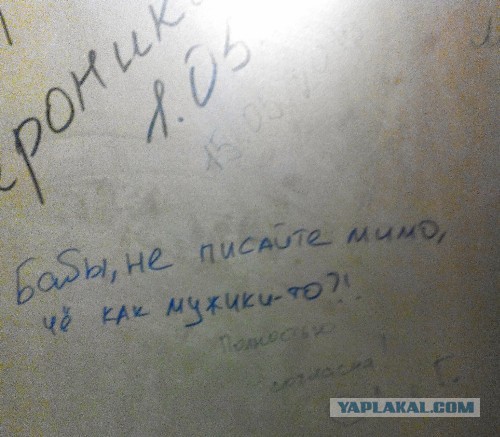 1.05
15.05
Бабы, не писайте мимо,
чё как мужики-то?!
Полностью
согласна!
YAPLAKAL.COM